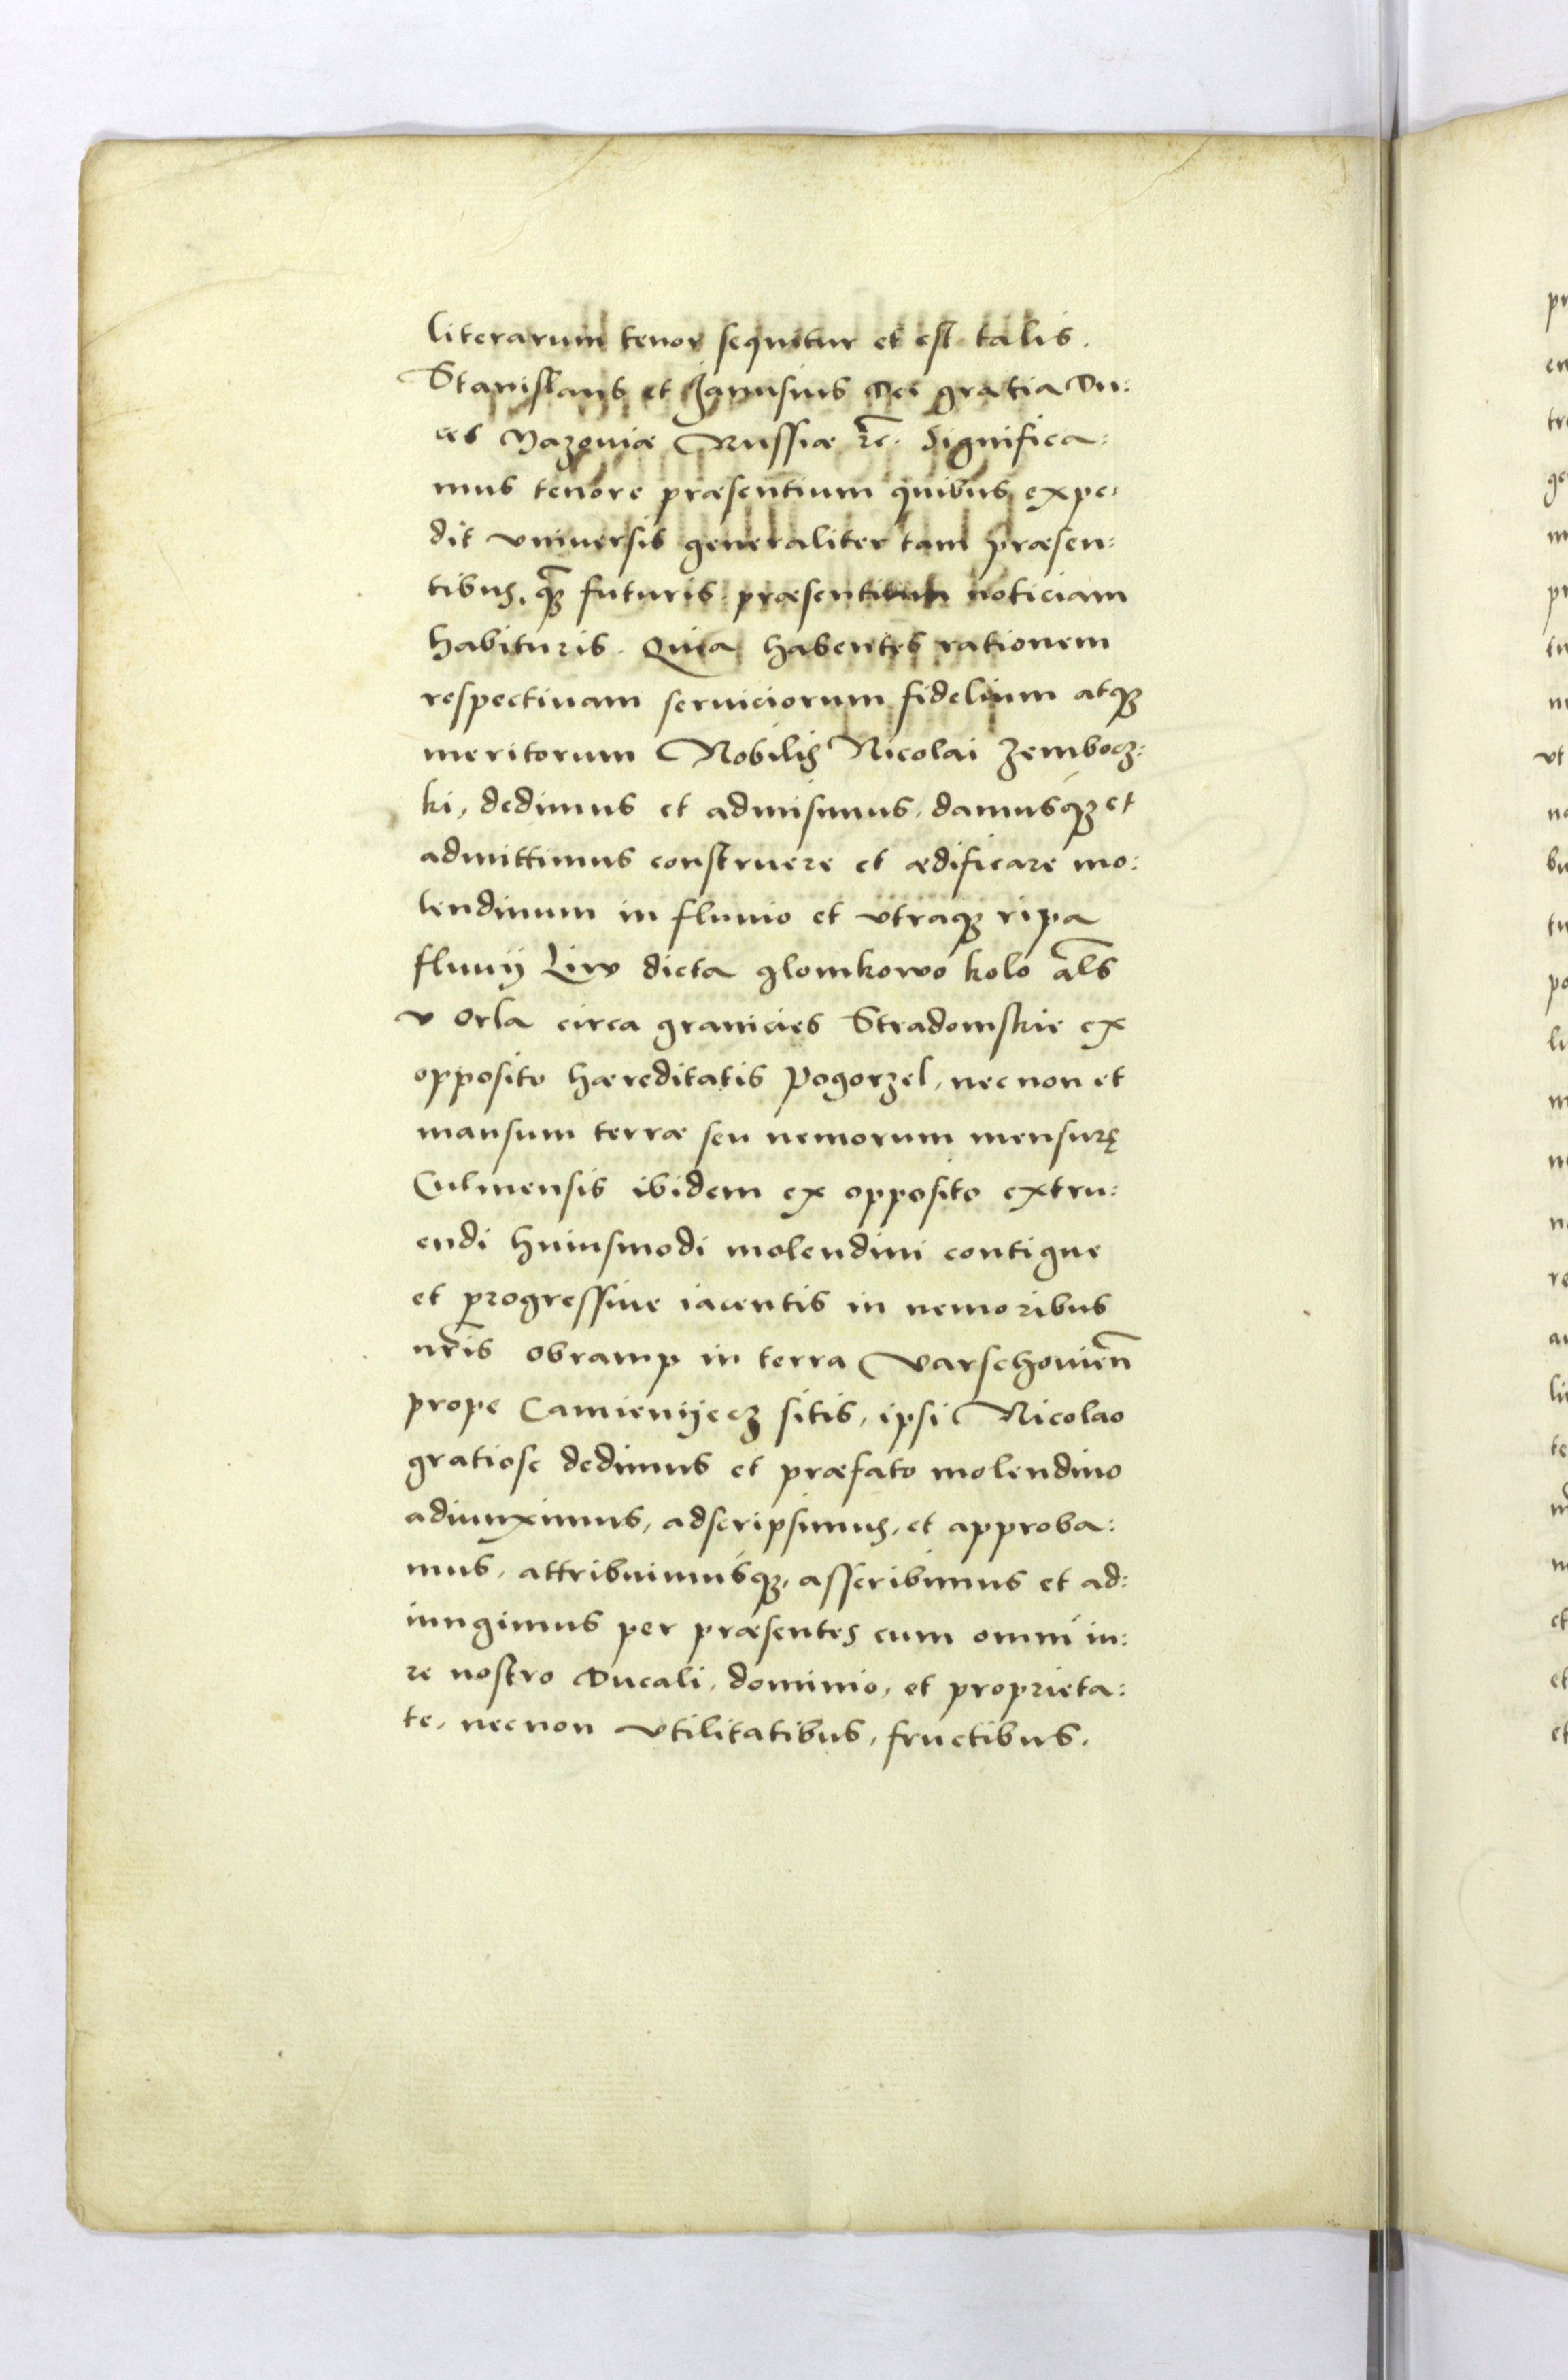 literarum tenor sequitur et est talis.
Stanislaus et Janusius Dei gratia Du:
ces Mazoviæ Russiæ rc̃. Significa:
mus tenore præsentium quibus expe:
dit vniuersis generaliter tam præsen:
tibus, qȝ̃ futuris præsentium noticiam
habituris. Quia habentes rationem
respectiuam seruiciorum fidelium atqȝ
meritorum Nobilis Nicolai Zembocz:
ki, dedimus et admisimus, damusqȝ et
admittimus construere et ædificare mo:
lendinum in fluuio et vtraqȝ ripa
fluuij Liw dicta glomkowo kolo al̃s
v Orla circa granicies Stradomskie ex
opposito hæreditatis Pogorzel, necnon et
mansum terræ seu nemorum mensurę
Culmensis ibidem ex opposito extru:
endi huiusmodi molendini contigue
et progressiue iacentis in nemoribus
nr̃is obramp in terra Varschouien̄
prope Camienijecz sitis, ipsi Nicolao
gratiose dedimus et præfato molendino
adiunximus, adscripsimus, et approba:
mus, attribuimusqȝ, asscribimus et ad:
iungimus per præsentes cum omni iu:
re nostro Ducali, dominio, et proprieta:
te, necnon vtilitatibus, fructibus.